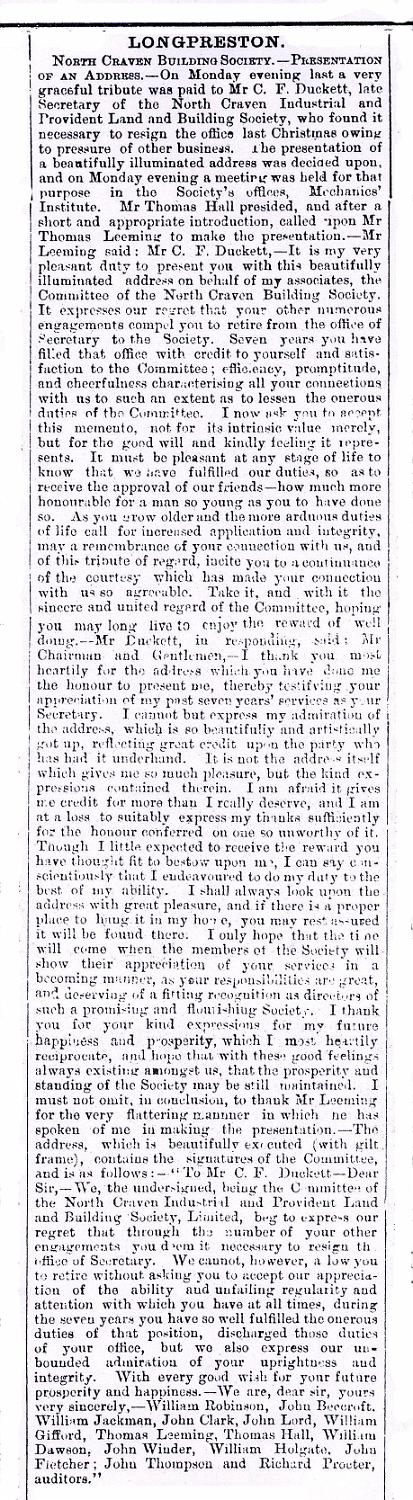 LONGPRESTON.
NORTH CRAVEN BUILDING SOCIETY.—PRESENTATION
OF AN ADDRESS.—On Monday evening last a very
graceful tribute was paid to Mr C. F. Duckett, late
Secretary of the North Craven Industrial and
Provident Land and Building Society, who found it
necessary to resign the office last Christmas owing
to pressure of other business. The presentation of
a beautifully illuminated address was decided upon,
and on Monday evening a meeting was held for that
purpose in the Society's offices, Mechanics'
Institute. Mr Thomas Hall presided, and after a
short and appropriate introduction, called upon Mr
Thomas Leeming to make the presentation.—Mr
Leeming said: Mr C. F. Duckett,—It is my very
pleasant duty to present you with this beautifully
illuminated address on behalf of my associates, the
Committee of the North Craven Building Society.
It expresses our regret that your other numerous
engagements compel you to retire from the office of
Secretary to the Society. Seven years you have
filled that office with credit to yourself and satis-
faction to the Committee; efficiency, promptitude,
and cheerfulness characterising all your connections
with us to such an extent as to lessen the onerous
duties of the Committee. I now ask you to accept
this memento, not for its intrinsic value merely,
but for the good will and kindly feeling it repre-
sents. It must be pleasant at any stage of life to
know that we have fulfilled our duties, so as to
receive the approval of our friends—how much more
honourable for a man so young as you to have done
so. As you grow older and the more arduous duties
of life call for increased application and integrity,
may a remembrance of your connection with us, and
of this tribute of regard, incite you to a continuance
of the courtesy which has made your connection
with us so agreeable. Take it, and with it the
sincere and united regard of the Committee, hoping
you may long live to enjoy the reward of well
doing.--Mr Duckett, in responding, said: Mr
Chairman and Gentlemen,—I thank you most
heartily for the address which you have done me
the honour to present me, thereby testifying your
appreciation of my past seven years' services as your
Secretary. I cannot but express my admiration of
the address, which is so beautifully and artistically
got up, reflecting great credit upon the party who
has had it underhand. It is not the address itself
which gives me so much pleasure, but the kind ex-
pressions contained therein. I am afraid it gives
me credit for more than I really deserve, and I am
at a loss to suitably express my thanks sufficiently
for the honour conferred on one so unworthy of it.
Though I little expected to receive the reward you
have thought fit to bestow upon me, I can say con-
scientiously that I endeavoured to do my duty to the
best of my ability. I shall always look upon the
address with great pleasure, and if there is a proper
place to hang it in my home, you may rest assured
it will be found there. I only hope that the time
will come when the members of the Society will
show their appreciation of your services in a
becoming manner, as your responsibilities are great,
and deserving of a fitting recognition as directors of
such a promising and flourishing Society. I thank
you for your kind expressions for my future
happiness and prosperity, which I most heartily
reciprocate, and hope that with these good feelings
always existing amongst us, that the prosperity and
standing of the Society may be still maintained. I
must not omit, in conclusion, to thank Mr Leeming
for the very flattering mannner in which he has
spoken of me in making the presentation.—The
address, which is beautifully executed (with gilt
frame), contains the signatures of the Committee,
and is as follows:—"To Mr C. F. Duckett—Dear
Sir,—We, the undersigned, being the Committee of
the North Craven Industrial and Provident Land
and Building Society, Limited, beg to express our
regret that through the number of your other
engagements you deem it necessary to resign the
office of Secretary. We cannot, however, allow you
to retire without asking you to accept our apprecia-
tion of the ability and unfailing regularity and
attention with which you have at all times, during
the seven years you have so well fulfilled the onerous
duties of that position, discharged those duties
of your office, but we also express our un-
bounded admiration of your uprightness and
integrity. With every good wish for your future
prosperity and happiness.—We are, dear sir, yours
very sincerely,—William Robinson, John Beecroft,
William Jackman, John Clark, John Lord, William
Gifford, Thomas Leeming, Thomas Hall, William
Dawson, John Winder, William Holgate, John
Fletcher; John Thompson and Richard Procter,
auditors."